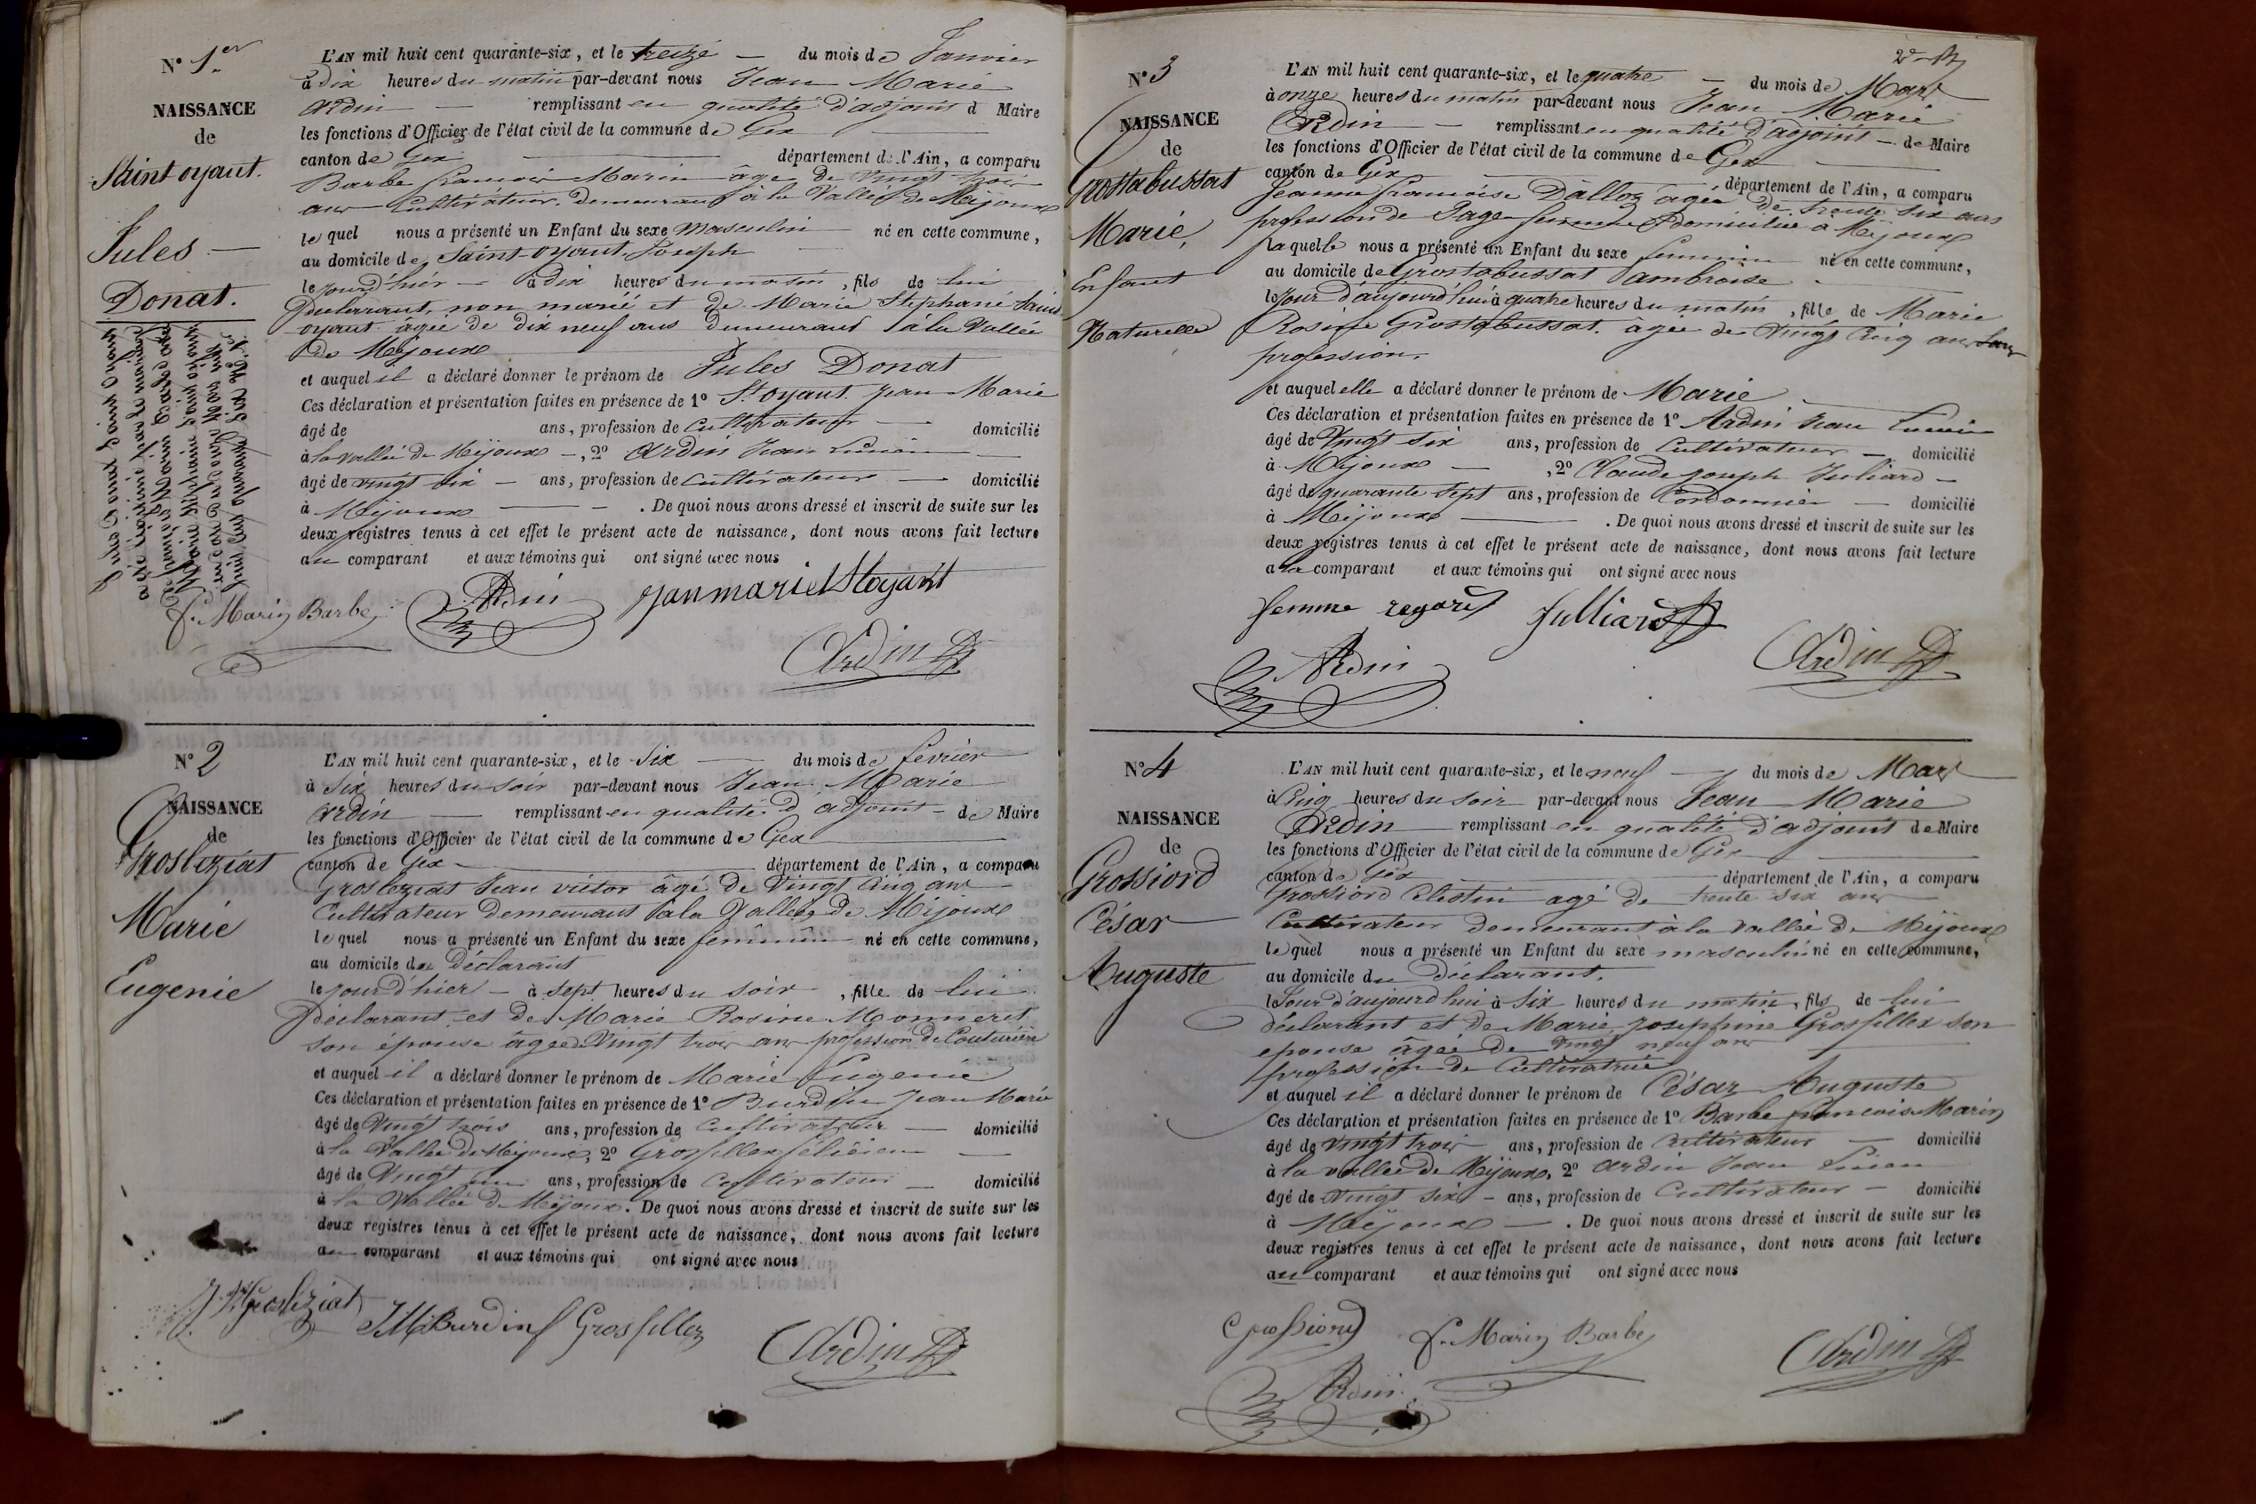 N° 1.er
NAISSANCE
de
Saint oyant.
Jules
Donat.
L'AN mil huit cent quarante-six, et le treize du mois de Janvier
à dix heures du matin par-devant nous Jean Marie
Ardin remplissant en qualité d'adjoint d Maire
les fonctions d'Officier de l'état civil de la commune de Gex
canton de Gex département de l'Ain, a comparu
Barbe francois Marin âgé de vingt trois
ans Cultivateur demeurant à la Vallée de Mijoux
le quel nous a présenté un Enfant du sexe masculin né en cette commune,
au domicile de Saint-oyant Joseph
le jourd'hier à dix heures du matin, fils de lui
Déclarant, non marié et de Marie Stephanie Saint
oyant âgée de dix neuf ans demeurant à la Vallée
de Mijoux
et auquel il a déclaré donner le prénom de Jules Donat
Ces déclaration et présentation faites en présence de 1° St oyant jean Marie
âgé de ans, profession de Cultivateur domicilié
à la vallée de Mijoux, 2° Ardin Jean Lucien
âgé de vingt six ans, profession de Cultivateur domicilié
à Mijoux. De quoi nous avons dressé et inscrit de suite sur les
deux registres tenus à cet effet le présent acte de naissance, dont nous avons fait lecture
au comparant et aux témoins qui ont signé avec nous
Jules Donat Saint oyant
f. Marin Barbe Ardin janmariestoyant
Ardin
N° 2
NAISSANCE
de
Grosleziat
Marie
Eugenie
L'AN mil huit cent quarante-six, et le Six du mois de février
à Six heures du soir par-devant nous Jean Marie
Ardin remplissant en qualité d'adjoint de Maire
les fonctions d'Officier de l'état civil de la commune de Gex
canton de Gex département de l'Ain, a comparu
Grosleziat Jean victor âgé de Vingt Cinq ans
Cultivateur Demeurant à la Vallée de Mijoux
le quel nous a présenté un Enfant du sexe féminin né en cette commune,
au domicile du Déclarant
le jourd'hier à sept heures du soir, fille de lui
Déclarant et de Marie Rosine Monneret
son épouse âgée Vingt trois ans profession de Couturière
et auquel il a déclaré donner le prénom de Marie Eugenie
Ces déclaration et présentation faites en présence de 1° Burdin Jean Marie
âgé de Vingt trois ans, profession de Cultivateur domicilié
à la Vallée de Mijoux, 2° Grosfillex félicien
âgé de Vingt un ans, profession de Cultivateur domicilié
à la Vallée d Mijoux. De quoi nous avons dressé et inscrit de suite sur les
deux registres tenus à cet effet le présent acte de naissance, dont nous avons fait lecture
au comparant et aux témoins qui ont signé avec nous
Grosleziat JM Burdin f Grosfillex Ardin
N° 3
NAISSANCE
de
Grostabussat
Marie,
Enfant
Naturelle
L'AN mil huit cent quarante-six, et le quatre du mois de Mars
à onze heures du matin par-devant nous Jean Marie
Ardin remplissant en qualité d'adjoint de Maire
les fonctions d'Officier de l'état civil de la commune de Gex
canton de Gex département de l'Ain, a comparu
Jeanne francoise Dalloz âgée de trente six ans
profession de Sage femme domiciliée à Mijoux
la quelle nous a présenté un Enfant du sexe feminin né en cette commune,
au domicile de Grostabussat ambroise
le Jour d'aujourd'hui à quatre heures du matin, fille de Marie
Rosine Grostabussat. âgée de Vingt Cinq ans Sans
profession.
et auquel elle a déclaré donner le prénom de Marie
Ces déclaration et présentation faites en présence de 1° Ardin Jean Lucien
âgé de Vingt Six ans, profession de Cultivateur domicilié
à Mijoux, 2° Claude joseph Juliard
âgé de quarante sept ans, profession de Cordonnier domicilié
à Mijoux. De quoi nous avons dressé et inscrit de suite sur les
deux registres tenus à cet effet le présent acte de naissance, dont nous avons fait lecture
a la comparant et aux témoins qui ont signé avec nous
femme Julliard
Ardin Ardin
N° 4
NAISSANCE
de
Grossiord
César
Auguste
L'AN mil huit cent quarante-six, et le neuf du mois de Mars
à Cinq heures du soir par-devant nous Jean Marie
Ardin remplissant en qualité d'adjoint de Maire
les fonctions d'Officier de l'état civil de la commune de Gex
canton de Gex département de l'Ain, a comparu
Grossiord Célestin agé de trente six ans
Cultivateur demeurant à la vallée de Mijoux
le quel nous a présenté un Enfant du sexe masculin né en cette commune,
au domicile du Déclarant.
le Jour d'aujourd'hui à Six heures du matin, fils de lui
déclarant et de Marie josephine Grosfillex son
epouse âgée de Vingt neuf ans
profession de Cultivatrice
et auquel il a déclaré donner le prénom de César Auguste
Ces déclaration et présentation faites en présence de 1° Barbe francois Marin
âgé de vingt trois ans, profession de Cultivateur domicilié
à la vallée de Mijoux, 2° Ardin Jean Lucien
âgé de vingt six ans, profession de Cultivateur domicilié
à Mijoux. De quoi nous avons dressé et inscrit de suite sur les
deux registres tenus à cet effet le présent acte de naissance, dont nous avons fait lecture
au comparant et aux témoins qui ont signé avec nous
Grossiord f. Marin Barbe Ardin
Ardin